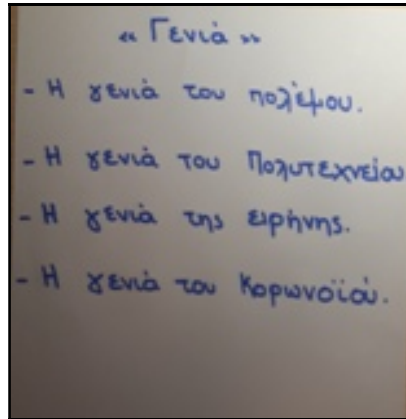 « Γενιά »
- Η γενιά του πολέμου.
- Η γενιά του Πολυτεχνείου
- Η γενιά της ειρήνης.
- Η γενιά του Κορωνοϊού.